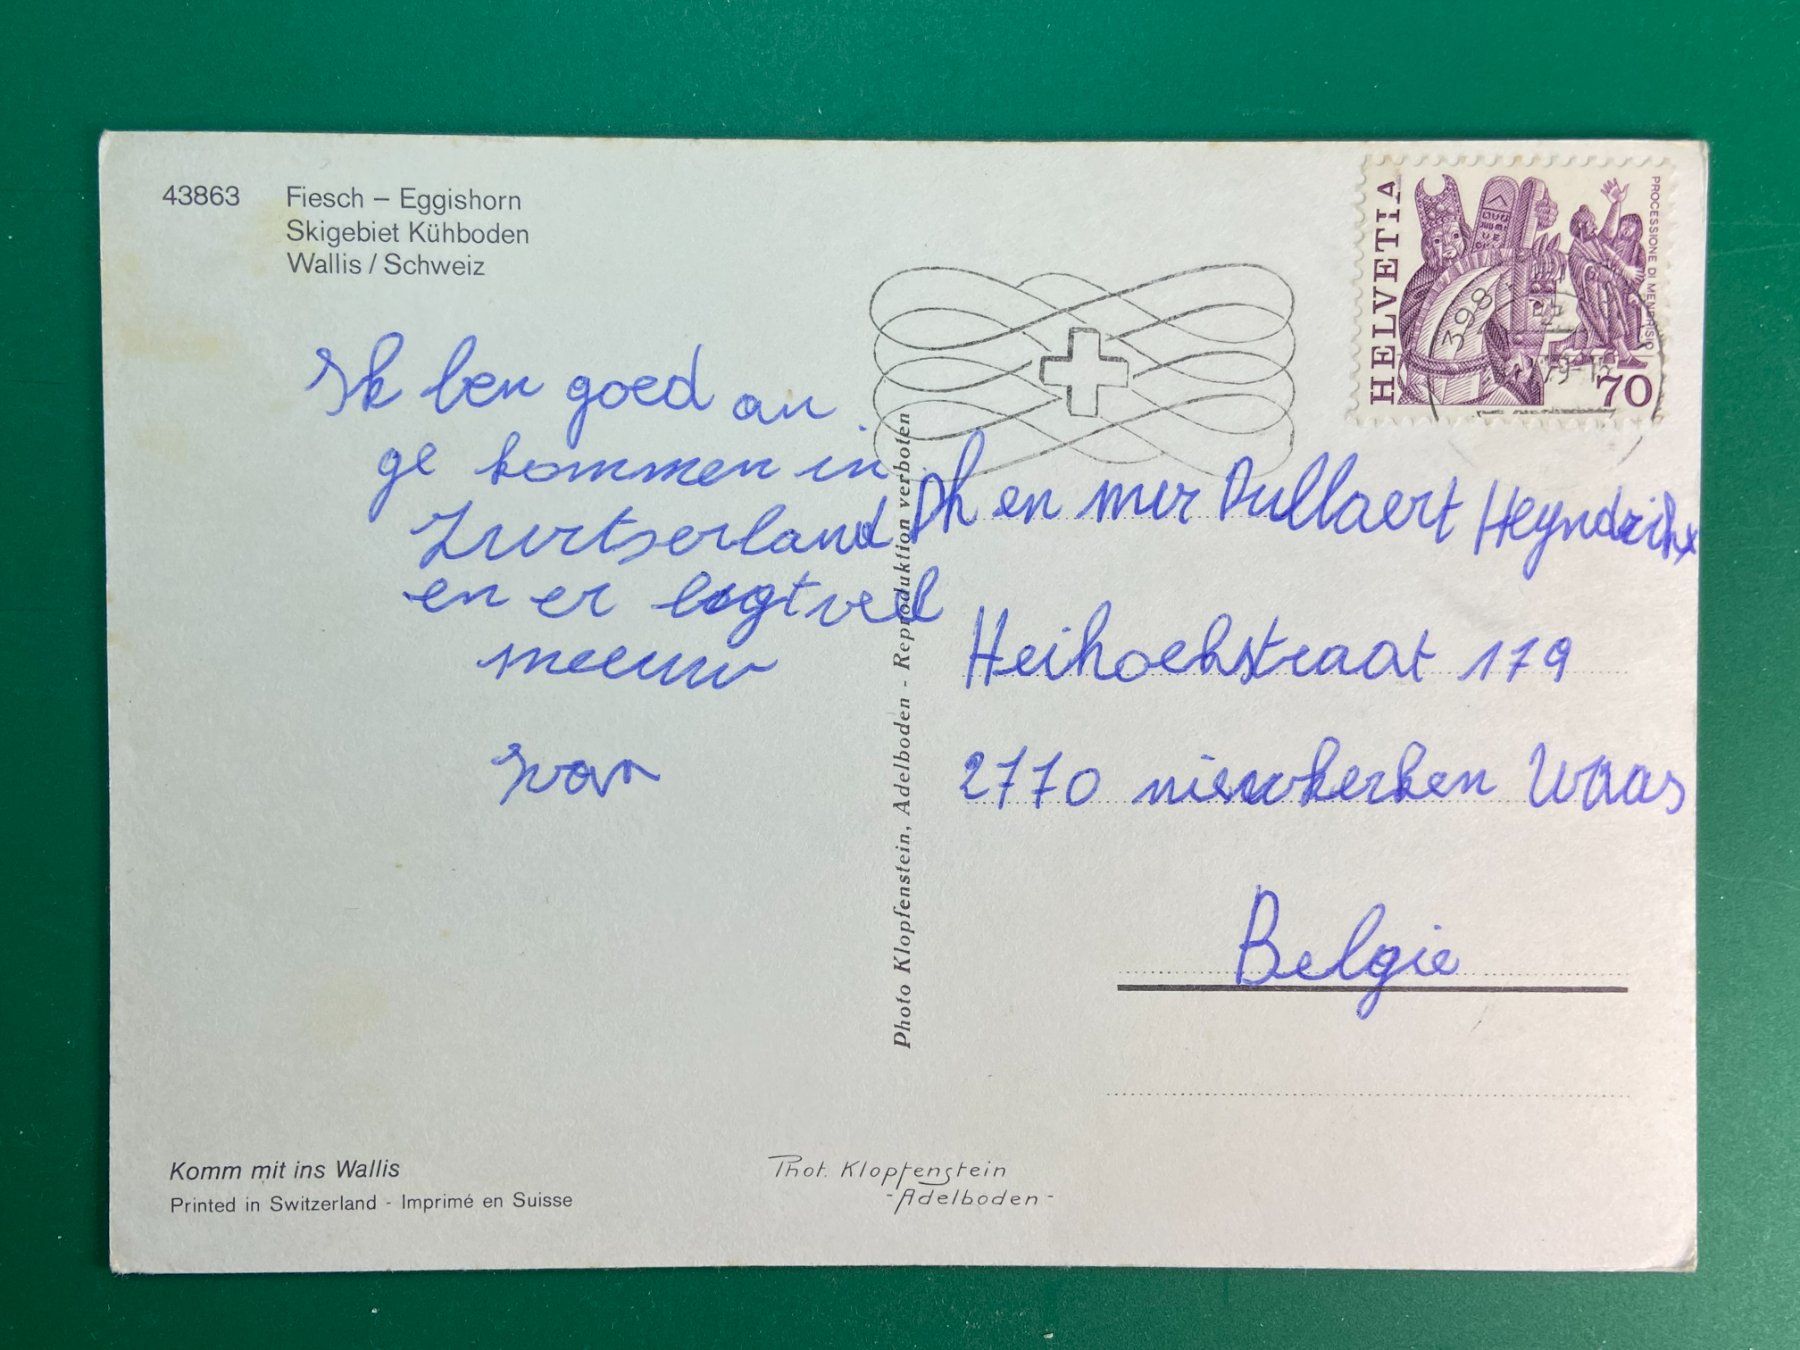 43863 Fiesch – Eggishorn
Skigebiet Kühboden
Wallis / Schweiz
HELVETIA
PROCESSIONE DI MENDRISIO
70
398
79-13
Ik ben goed an
ge kommen in
Zwitserland
en er ligt veel
meeuw
Ivan
en mer Dullaert Heyndrikx
Heihoekstraat 179
2770 nieuwkerken Waas
Belgie
Photo Klopfenstein, Adelboden - Reproduktion verboten
Komm mit ins Wallis
Printed in Switzerland - Imprimé en Suisse
Phot. Klopfenstein
-Adelboden-